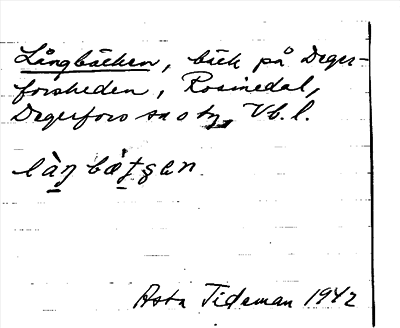 Långbäcken, bäck på Degerforsheden, Rosinedal,
Degerfors sn o ty, Vb. l.
Asta Tideman 1942